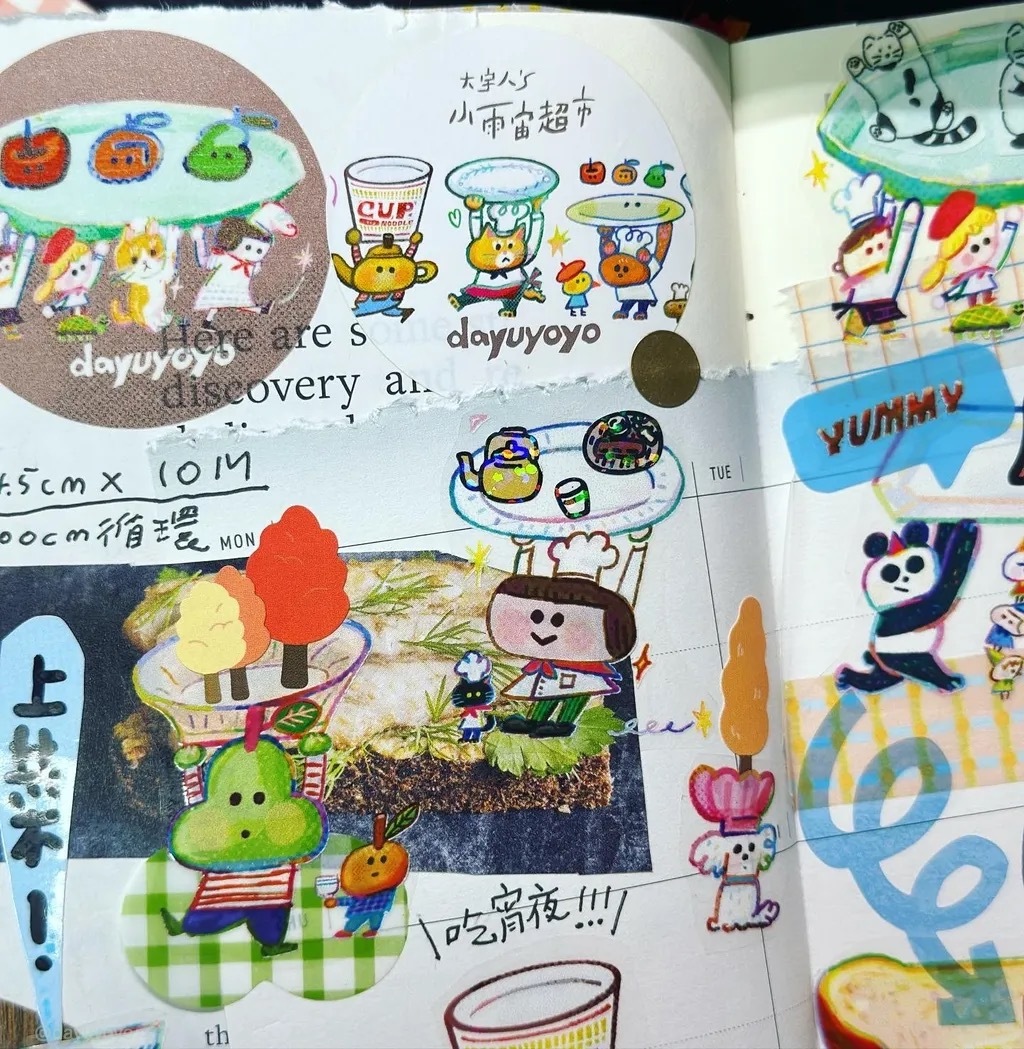 大宇人's
小雨宙超市
CUP
NOODLE
dayuyoyo
dayuyoyo
Here are s
discovery an
YUMMY
4.5cm x 10M
00cm循環
MON
TUE
上菜！
\吃宵夜!!!/
th